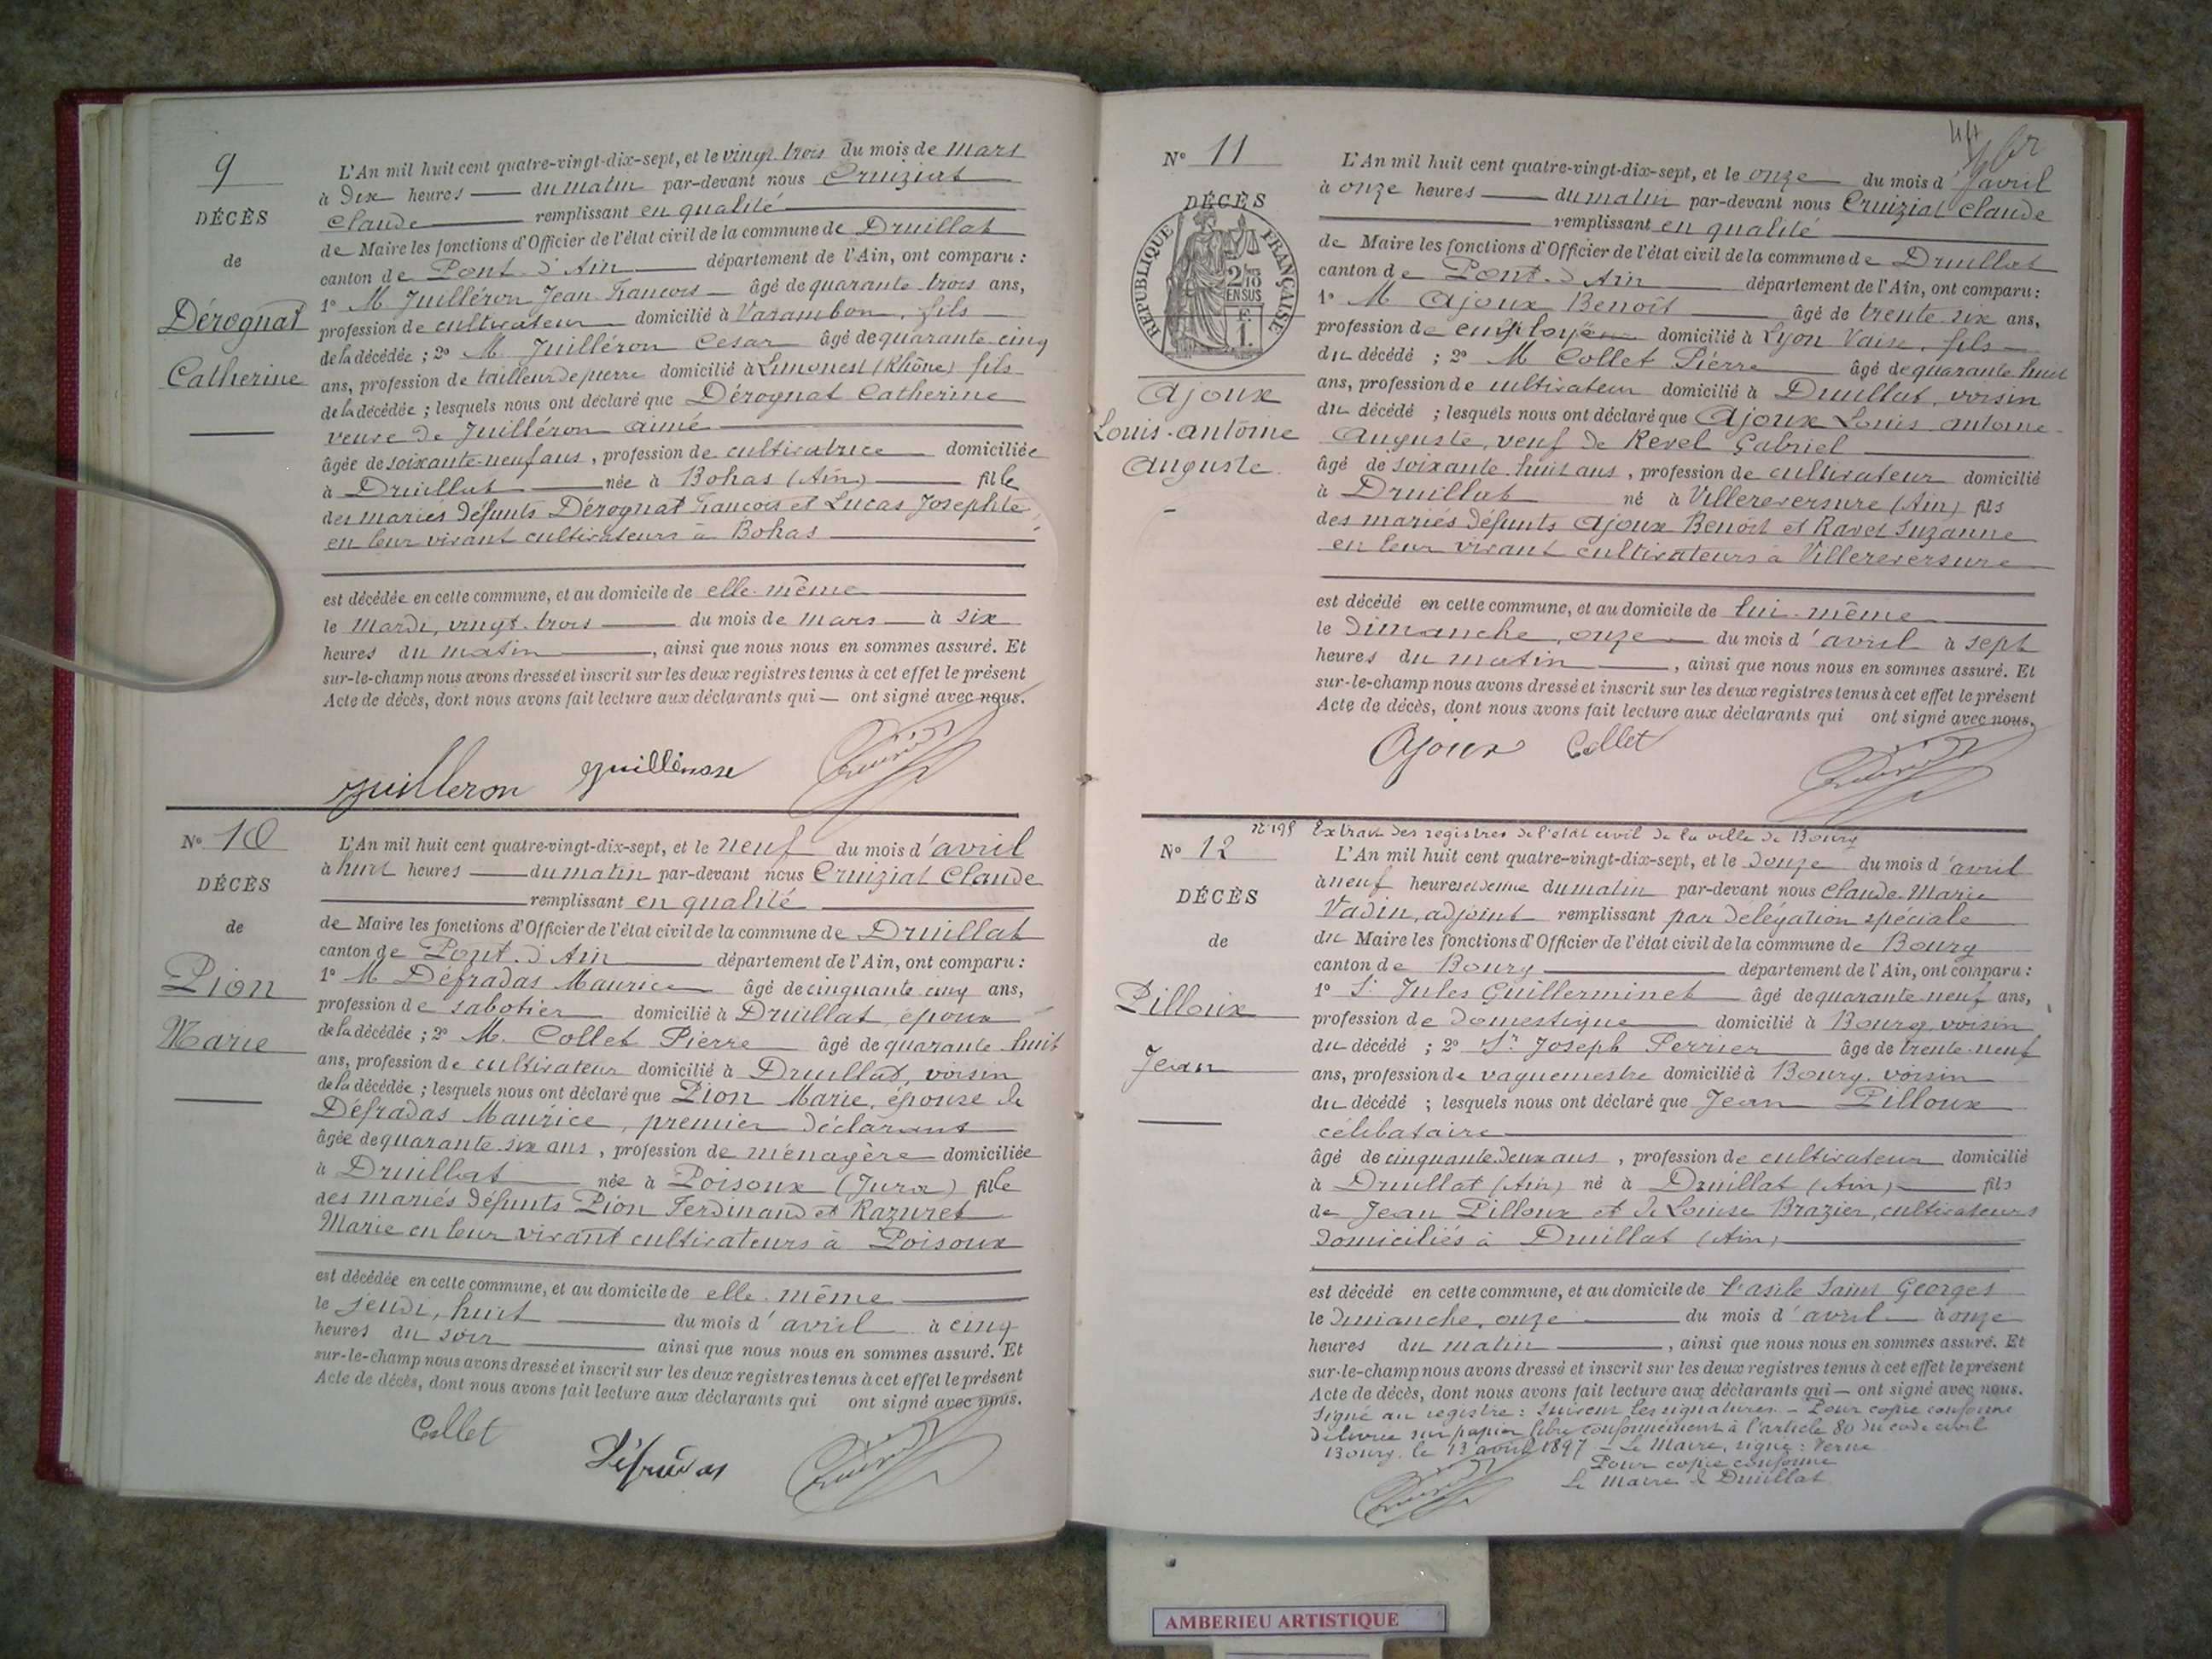 9
DÉCÈS
de
Dérognat
Catherine
L'An mil huit cent quatre-vingt-dix-sept, et le vingt-trois du mois de mars
à dix heures du matin par-devant nous Cruiziat
Claude remplissant en qualité
de Maire les fonctions d'Officier de l'état civil de la commune de Druillat
canton de Pont-d'Ain département de l'Ain, ont comparu :
1º M. Juilléron Jean François âgé de quarante trois ans,
profession de cultivateur domicilié à Varambon, fils
de la décédée ; 2º M. Juilléron Cesar âgé de quarante cinq
ans, profession de tailleur de pierre domicilié à Limonest (Rhône) fils
de la décédée ; lesquels nous ont déclaré que Dérognat Catherine
veuve de Juilléron aimé
âgée de soixante-neuf ans, profession de cultivatrice domiciliée
à Druillat née à Bohas (Ain) fille
des mariés défunts Dérognat François et Lucas Josephte,
en leur vivant cultivateurs à Bohas
est décédée en cette commune, et au domicile de elle-même
le mardi, vingt-trois du mois de mars à six
heures du matin, ainsi que nous nous en sommes assuré. Et
sur-le-champ nous avons dressé et inscrit sur les deux registres tenus à cet effet le présent
Acte de décès, dont nous avons fait lecture aux déclarants qui ont signé avec nous.
Juilleron
Nº 10
DÉCÈS
de
Pion
Marie
L'An mil huit cent quatre-vingt-dix-sept, et le neuf du mois d'avril
à huit heures du matin par-devant nous Cruiziat Claude
remplissant en qualité
de Maire les fonctions d'Officier de l'état civil de la commune de Druillat
canton de Pont-d'Ain département de l'Ain, ont comparu :
1º M Défradas Maurice âgé de cinquante cinq ans,
profession de sabotier domicilié à Druillat, époux
de la décédée ; 2º M. Collet Pierre âgé de quarante huit
ans, profession de cultivateur domicilié à Druillat, voisin
de la décédée ; lesquels nous ont déclaré que Pion Marie, épouse de
Défradas Maurice, premier déclarant
âgée de quarante-six ans, profession de ménagère domiciliée
à Druillat née à Poisoux (Jura) fille
des mariés défunts Pion Ferdinand et Razuret
Marie en leur vivant cultivateurs à Poisoux
est décédée en cette commune, et au domicile de elle-même
le jeudi, huit du mois d'avril à cinq
heures du soir ainsi que nous nous en sommes assuré. Et
sur-le-champ nous avons dressé et inscrit sur les deux registres tenus à cet effet le présent
Acte de décès, dont nous avons fait lecture aux déclarants qui ont signé avec nous.
Collet
Défradas
Nº 11
DÉCÈS
RÉPUBLIQUE FRANÇAISE
2/10 EN SUS
F. 1.
Ajoux
Louis-antoine
Auguste
L'An mil huit cent quatre-vingt-dix-sept, et le onze du mois d'avril
à onze heures du matin par-devant nous Cruiziat Claude
remplissant en qualité
de Maire les fonctions d'Officier de l'état civil de la commune de Druillat
canton de Pont-d'Ain département de l'Ain, ont comparu :
1º M Ajoux Benoît âgé de trente six ans,
profession de employé domicilié à Lyon Vaise, fils
du décédé ; 2º M Collet Pierre âgé de quarante huit
ans, profession de cultivateur domicilié à Druillat, voisin
du décédé ; lesquels nous ont déclaré que Ajoux Louis antoine
Auguste, veuf de Revel Gabriel
âgé de soixante-huit ans, profession de cultivateur domicilié
à Druillat né à Villereversure (Ain) fils
des mariés défunts Ajoux Benoît et Ravet Suzanne
en leur vivant cultivateurs à Villereversure
est décédé en cette commune, et au domicile de lui-même
le Dimanche, onze du mois d'avril à sept
heures du matin, ainsi que nous nous en sommes assuré. Et
sur-le-champ nous avons dressé et inscrit sur les deux registres tenus à cet effet le présent
Acte de décès, dont nous avons fait lecture aux déclarants qui ont signé avec nous.
Ajoux Collet
nº 198 Extrait des registres de l'état civil de la ville de Bourg
Nº 12
DÉCÈS
de
Pilloux
Jean
L'An mil huit cent quatre-vingt-dix-sept, et le douze du mois d'avril
à neuf heures et demie du matin par-devant nous Claude-Marie
Vadin, adjoint remplissant par délégation spéciale
du Maire les fonctions d'Officier de l'état civil de la commune de Bourg
canton de Bourg département de l'Ain, ont comparu :
1º Sr Jules Guillerminet âgé de quarante-neuf ans,
profession de domestique domicilié à Bourg, voisin
du décédé ; 2º Sr Joseph Perrier âgé de trente-neuf
ans, profession de vaguemestre domicilié à Bourg, voisin
du décédé ; lesquels nous ont déclaré que Jean Pilloux
célibataire
âgé de cinquante-deux ans, profession de cultivateur domicilié
à Druillat (Ain) né à Druillat (Ain) fils
de Jean Pilloux et de Louise Brazier, cultivateurs
domiciliés à Druillat (Ain)
est décédé en cette commune, et au domicile de l'asile Saint Georges
le dimanche, onze du mois d'avril à onze
heures du matin, ainsi que nous nous en sommes assuré. Et
sur-le-champ nous avons dressé et inscrit sur les deux registres tenus à cet effet le présent
Acte de décès, dont nous avons fait lecture aux déclarants qui ont signé avec nous.
Signé au registre : suivent les signatures. Pour copie conforme
délivrée sur papier libre conformément à l'article 80 du code civil
Bourg, le 13 août 1897 - Le Maire, signé : Verne
Pour copie conforme
Le Maire de Druillat
AMBERIEU ARTISTIQUE